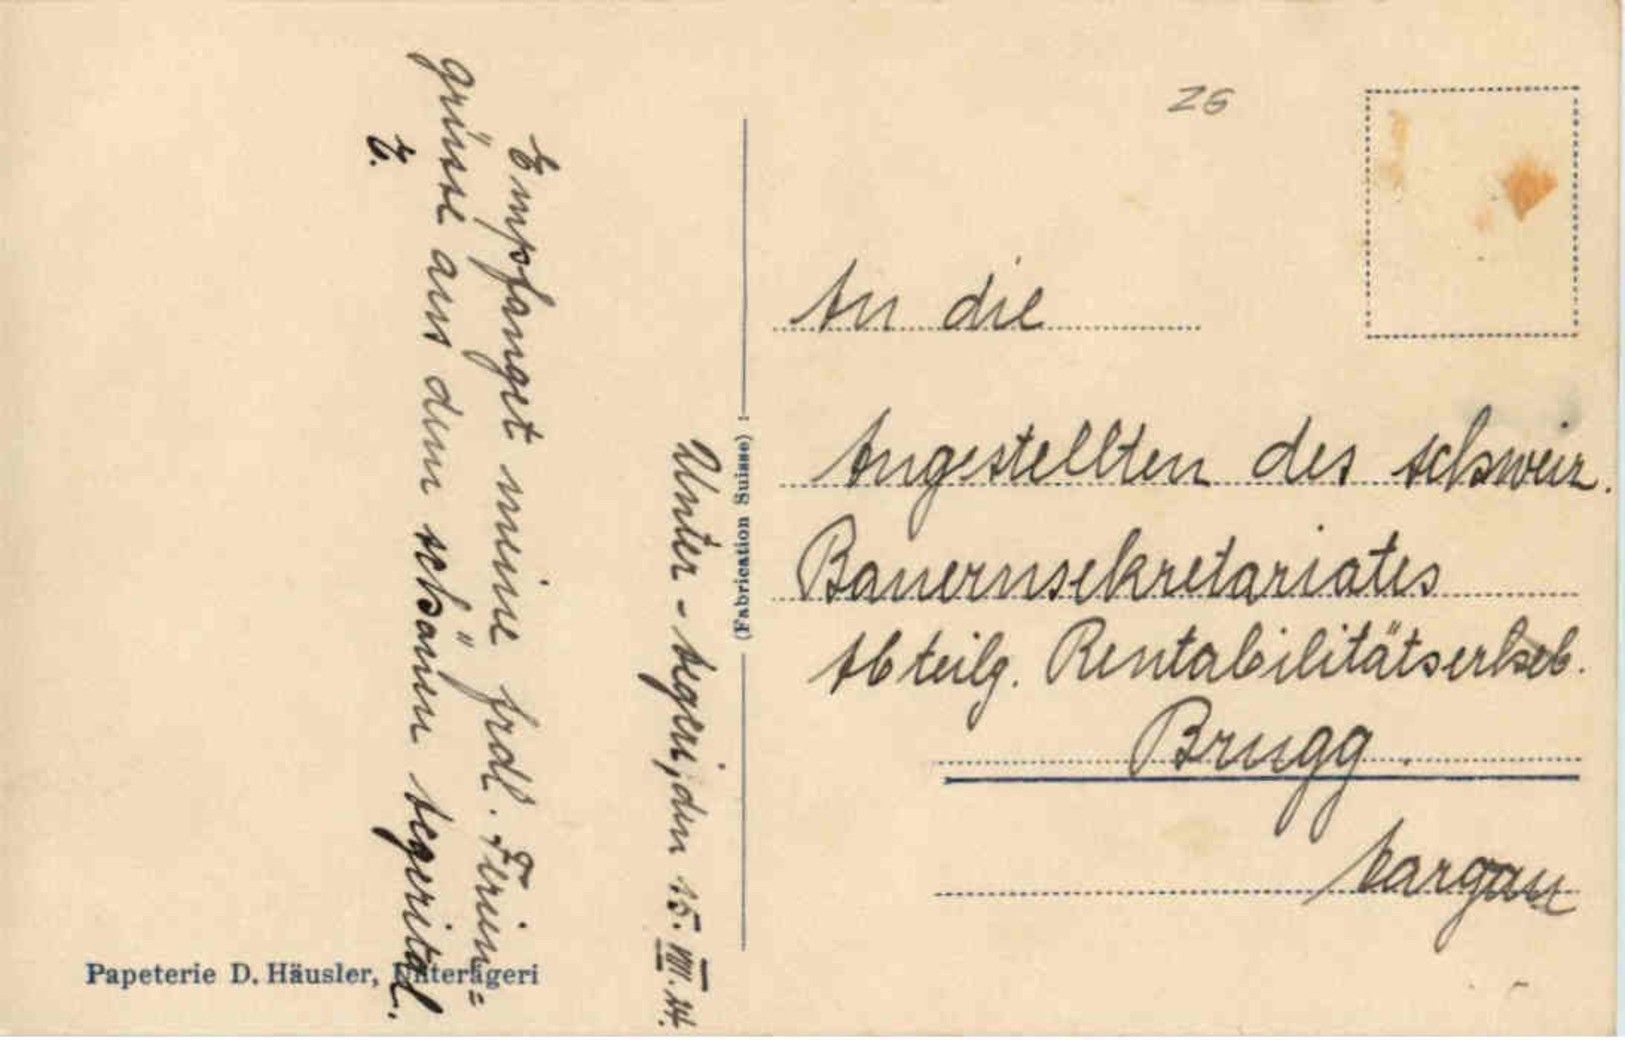 Unter-Aegeri, den 15. VIII. 24.
Empfanget meine frdl. Ferien=
grüsse aus dem schönen Aegerital.
E.
Papeterie D. Häusler, Unterägeri
(Fabrication Suisse)
ZG
An die
Angestellten des schweiz.
Bauernsekretariates
Abteilg. Rentabilitätserheb.
Brugg
Aargau